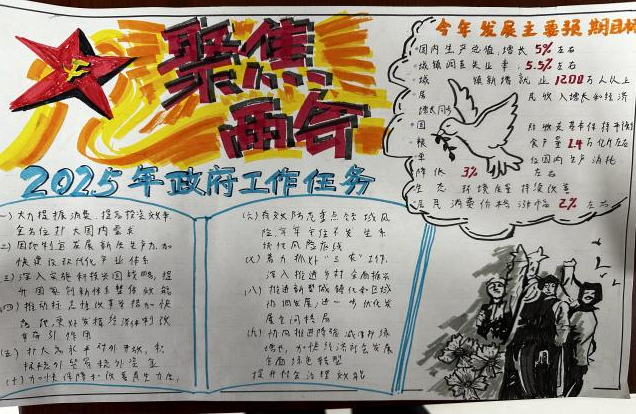 聚焦
两会
2025年政府工作任务
今年发展主要预期目标
·国内生产总值增长5%左右
·城镇调查失业率5.5%左右
·城镇新增就业1200万人以上
·居民收入增长和经济
增长同步
·国际收支基本保持平衡
·粮食产量1.4万亿斤左右
·单位国内生产消耗
降低3%左右
生态环境质量持续改善
·居民消费价格涨幅2%左右
一)大力提振消费、提高投资效率
全方位扩大国内需求
二)因地制宜发展新质生产力,加
快建设现代化产业体系
三)深入实施科技兴国战略,提
升国家创新体系整体效能
四)推动标志性改革举措加快
落地,更好发挥经济体制改
革牵引作用
(五)扩大高水平对外开放,积
极稳外贸稳外资
(六)有效防范重点领域风
险,牢牢守住不发生系
统性风险底线
(七)着力抓好"三农"工作,
深入推进乡村全面振兴
(八)推进新型城镇化和区域
协调发展,进一步优化发
展空间格局
(九)协同推进降碳减污扩绿
增长,加快经济社会发展
全面绿色转型
(十)加快保障和改善民生力度,
提升社会治理效能